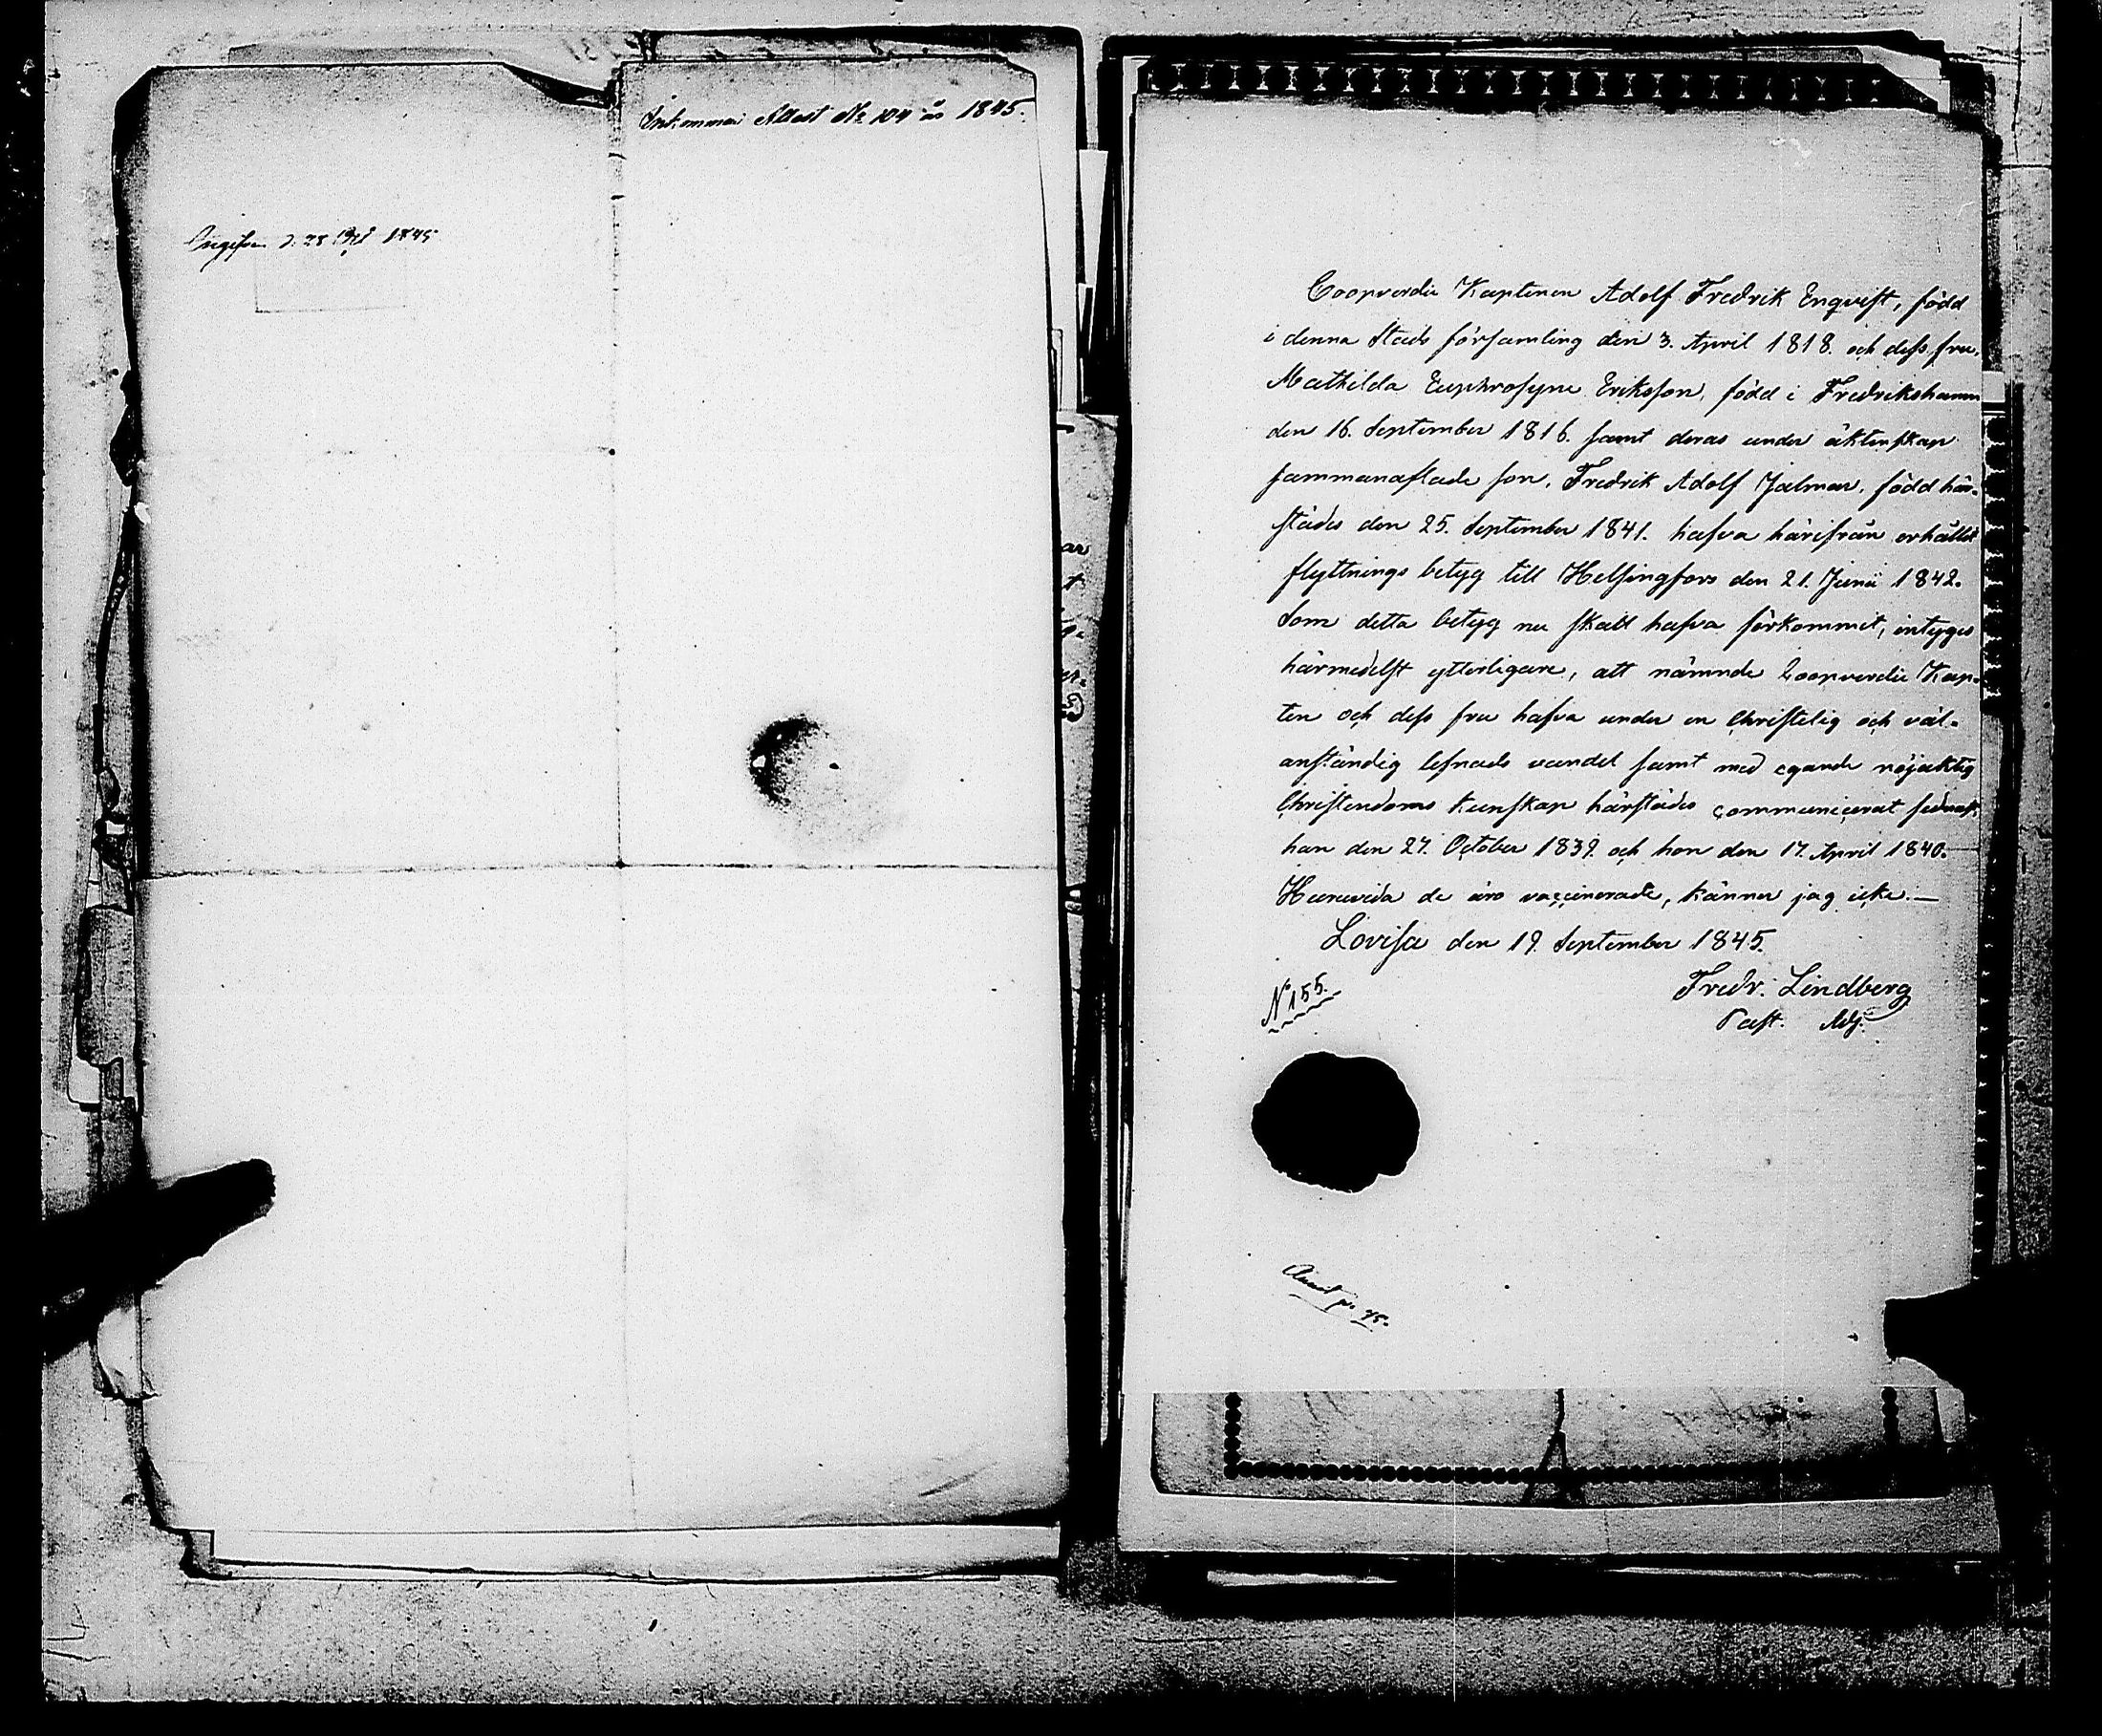 Inkommen Attest No 104 år 1845.
Ingifven d. 28 1845
Coopverdie Kaptenen Adolf Fredrik Enqvist, född
i denna Stads församling den 3. April 1818. och dess fru,
Mathilda Euphrosyne Erikson, född i Fredrikshamn
den 16. September 1816. samt deras under äktenskap
sammanaflade son, Fredrik Adolf Jalmar, född här-
städes den 25. September 1841. hafva härifrån erhållit
flyttnings betyg till Helsingfors den 21. Junii 1842.
Som detta betyg nu skall hafva förkommit, intygas
härmedelst ytterligare, att nämnde Coopverdie Kap-
ten och dess fru hafva under en Christelig och väl-
anständig lefnads vandel samt med egande nöjaktig
Christendoms kunskap härstädes communicerat sednast,
han den 27. October 1839. och hon den 17. April 1840.
Huruvida de äro vaccinerade, känner jag icke.—
Lovisa den 19. September 1845.
Fredr. Lindberg
Past. Adj.
No 155.
p. 75.